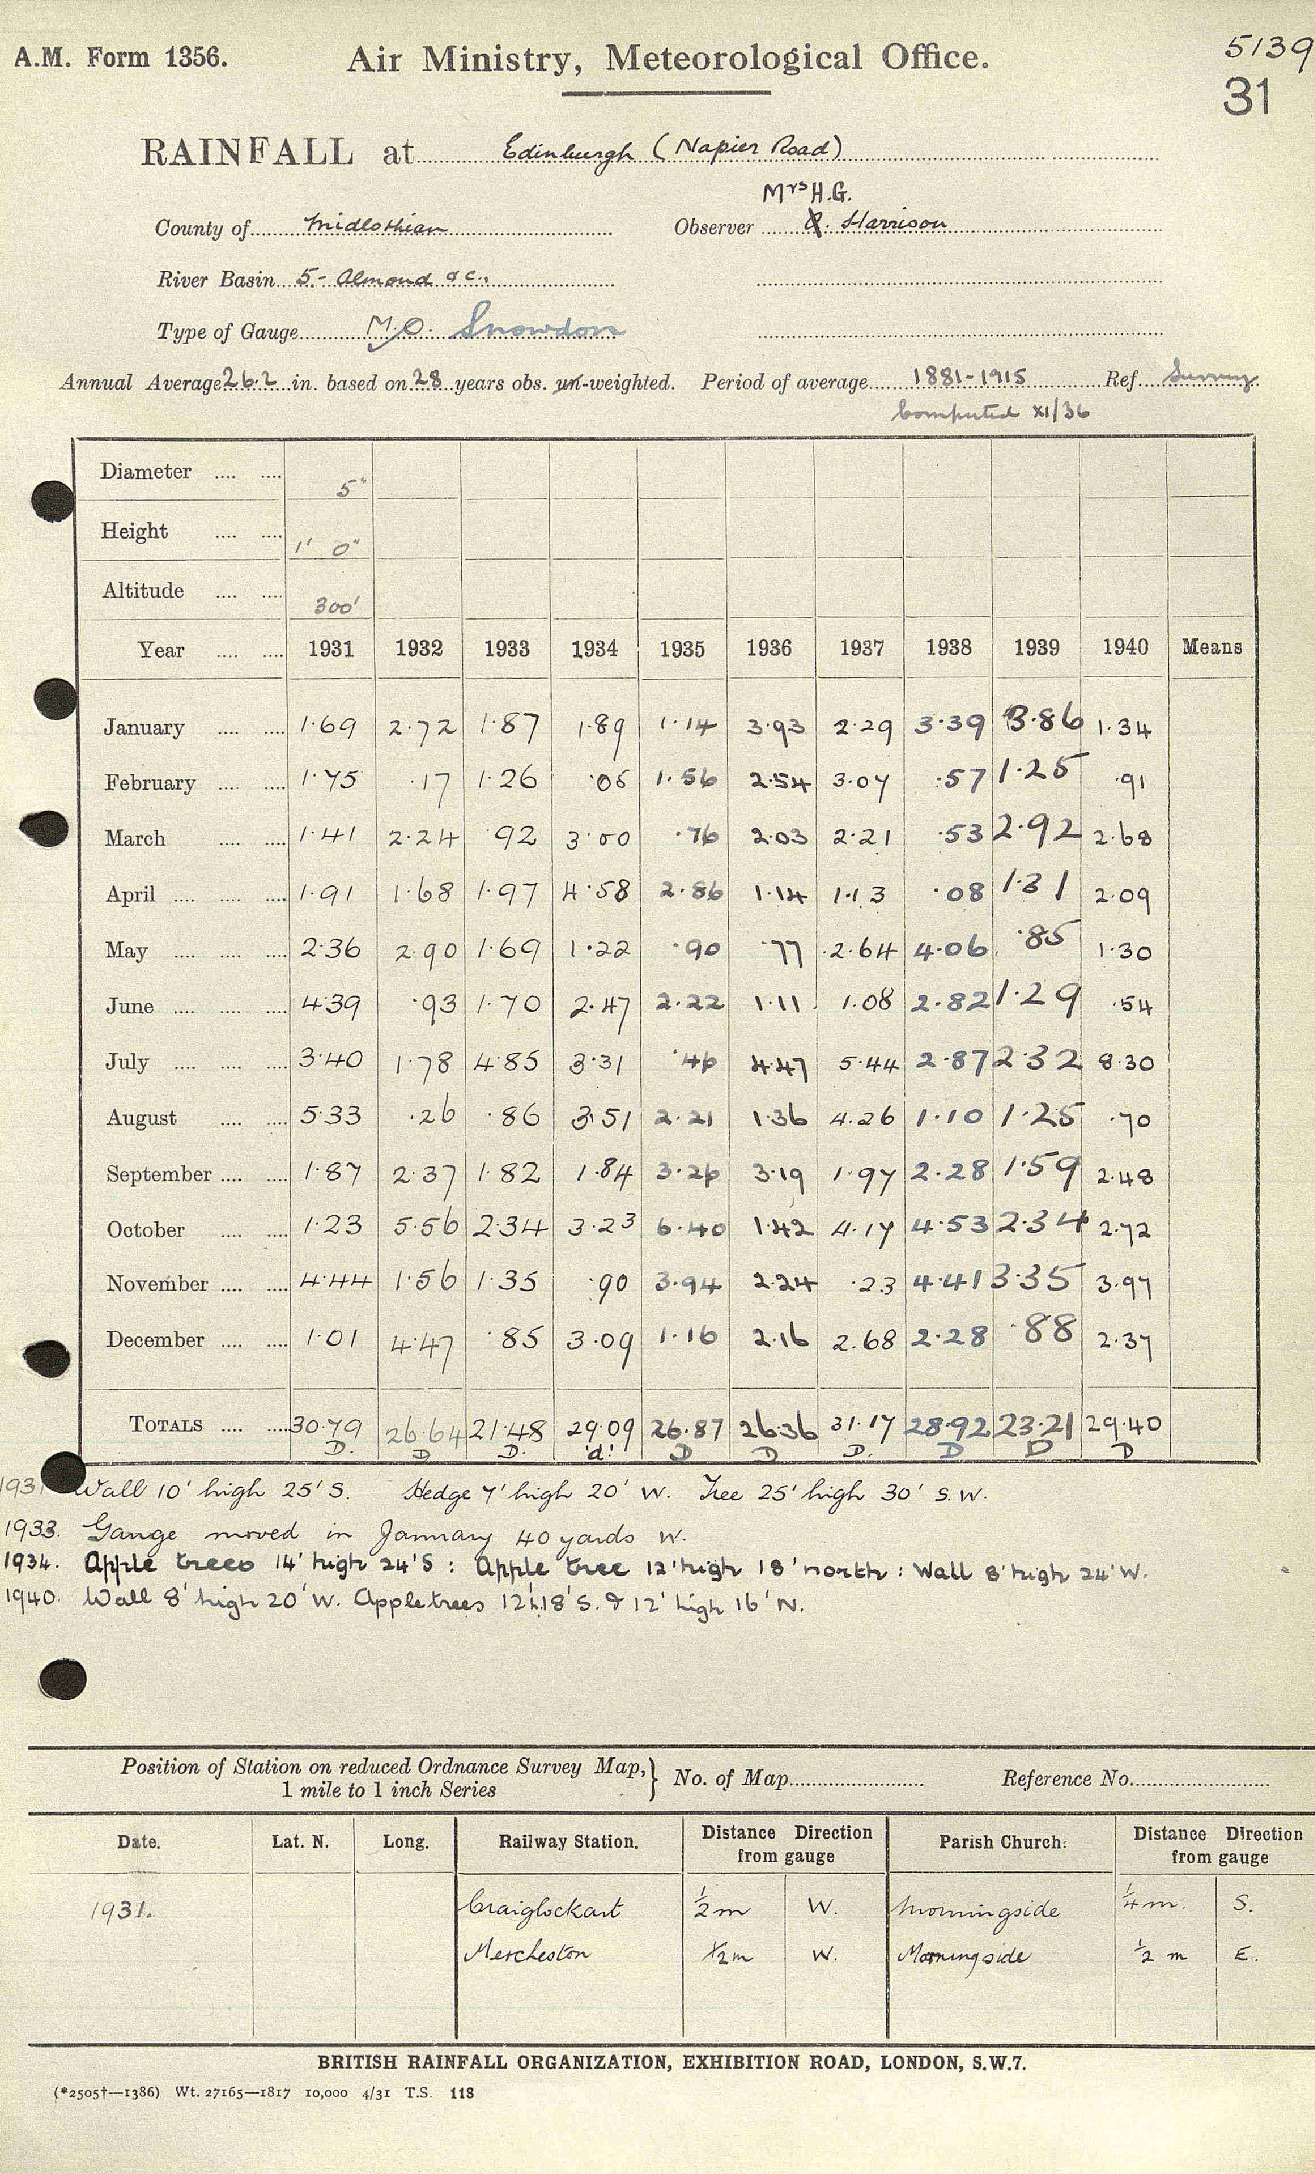 5139
A.M. Form 1356. Air Ministry, Meteorological Office.
31
RAINFALL at Edinburgh (Napier Road)
Mrs H.G.
County of Midlothian Observer Harrison
River Basin 5 - Almond &c.,
Type of Gauge M.O. Snowdon
Annual Average 26.2 in. based on 28 years obs. un-weighted. Period of average 1881-1915 Ref. Survey
Computed XI/36
Diameter 5"
Height 1' 0"
Altitude 300'
Year 1931 1932 1933 1934 1935 1936 1937 1938 1939 1940 Means
January 1.69 2.72 1.87 1.89 1.14 3.93 2.29 3.39 3.86 1.34
February 1.75 .17 1.26 .05 1.56 2.54 3.07 .57 1.25 .91
March 1.41 2.24 .92 3.00 .76 2.03 2.21 .53 2.92 2.68
April 1.91 1.68 1.97 4.58 2.86 1.14 1.13 .08 1.31 2.09
May 2.36 2.90 1.69 1.22 .90 .77 2.64 4.06 .85 1.30
June 4.39 .93 1.70 2.47 2.22 1.11 1.08 2.82 1.29 .54
July 3.40 1.78 4.85 3.31 .46 4.47 5.44 2.87 2.32 8.30
August 5.33 .26 .86 3.51 2.21 1.36 4.26 1.10 1.25 .70
September 1.87 2.37 1.82 1.84 3.26 3.19 1.97 2.28 1.59 2.48
October 1.23 5.56 2.34 3.23 6.40 1.42 4.17 4.53 2.34 2.72
November 4.44 1.56 1.35 .90 3.94 2.24 .23 4.41 3.35 3.97
December 1.01 4.47 .85 3.09 1.16 2.16 2.68 2.28 .88 2.37
TOTALS 30.79 26.64 21.48 29.09 26.87 26.36 31.17 28.92 23.21 29.40
D. D D. 'd' D D D. D D D
1931 Wall 10' high 25' S. Hedge 7' high 20' W. Tree 25' high 30' S.W.
1933. Gauge moved in January 40 yards W.
1934. Apple trees 14' high 24' S : Apple tree 12' high 18' north : Wall 8' high 24' W.
1940. Wall 8' high 20' W. Apple trees 12'h.18' S. & 12' high 16' N.
Position of Station on reduced Ordnance Survey Map, 1 mile to 1 inch Series } No. of Map Reference No.
Date. Lat. N. Long. Railway Station. Distance Direction from gauge Parish Church. Distance Direction from gauge
1931. Craiglockart ½ m W. Morningside ¼ m. S.
Mercheston ½ m W. Morningside ½ m E.
BRITISH RAINFALL ORGANIZATION, EXHIBITION ROAD, LONDON, S.W.7.
(*2505†—1386) Wt. 27165—1817 10,000 4/31 T.S. 118